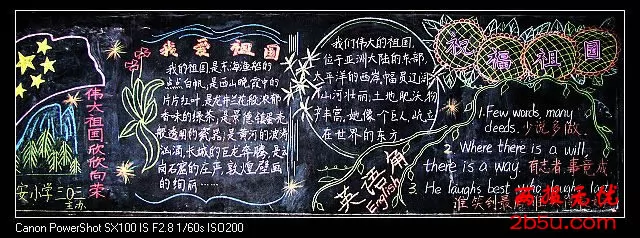 伟大祖国欣欣向荣
安小学三〇二
主办
我爱祖国
我们的祖国,是东海渔船的
点点白帆,是西山晚霞中的
片片红叶,是龙井
香味的绿茶,是景德镇
般透明的瓷器,是黄河的波涛
汹涌,长城的巨龙奔腾,是云
冈石窟的庄严,敦煌壁画
的绚丽……
我们伟大的祖国,
位于亚洲大陆的东部,
太平洋的西岸,幅员辽阔
山河壮丽,土地肥沃,物
产丰富,她像个巨人,屹立
在世界的东方。
英语角
English
祝福祖国
1. Few words, many
deeds. 少说多做.
2. Where there is a will,
there is a way. 有志者,事竟成
3. He laughs best who laughs last
谁笑到最
两版无忧
2b5u.com
Canon PowerShot SX100 IS F2.8 1/60s ISO200